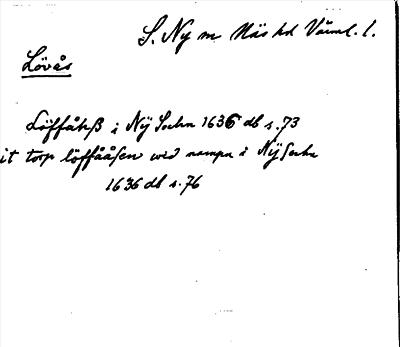 S. Ny m Näs hd Värml. l.
Lövås
Löffåhß i Nÿ Sochn 1636 db s. 73
it torp löffååsen wid nampn i Nÿ Sochn
1636 db s. 76